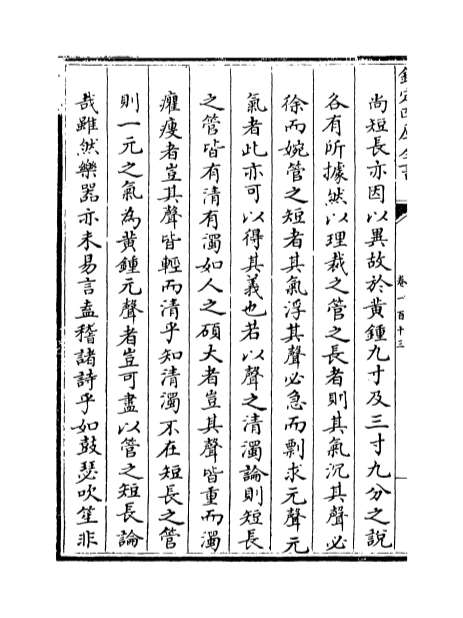 欽定四庫全書
卷一百十三
尚短長亦因以異故於黄鍾九寸及三寸九分之説
各有所據然以理裁之管之長者則其氣沉其聲必
徐而婉管之短者其氣浮其聲必急而剽求元聲元
氣者此亦可以得其義也若以聲之清濁論則短長
之管皆有清有濁如人之碩大者豈其聲皆重而濁
癯瘦者豈其聲皆輕而清乎知清濁不在短長之管
則一元之氣為黄鍾元聲者豈可盡以管之短長論
哉雖然樂器亦未易言盍稽諸詩乎如鼓瑟吹笙非